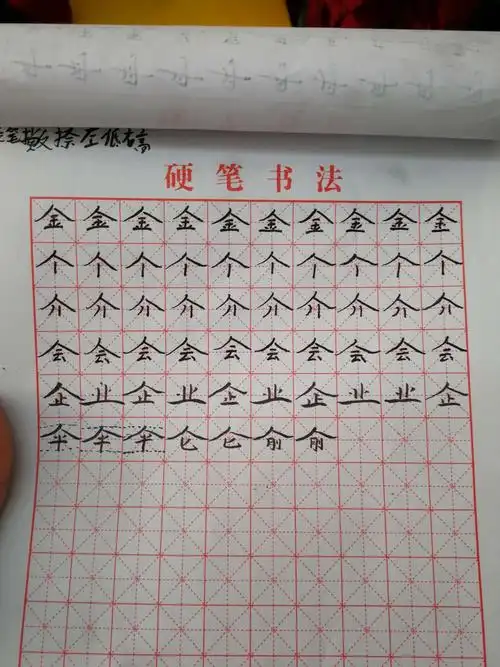 笔撇捺左低右高
硬笔书法
金金金金金金金金金金
个个个个个个个个个个
介介介介介介介介介介
会会会会会会会会会会
企业企业企业企业业企
伞伞伞仑仑俞俞